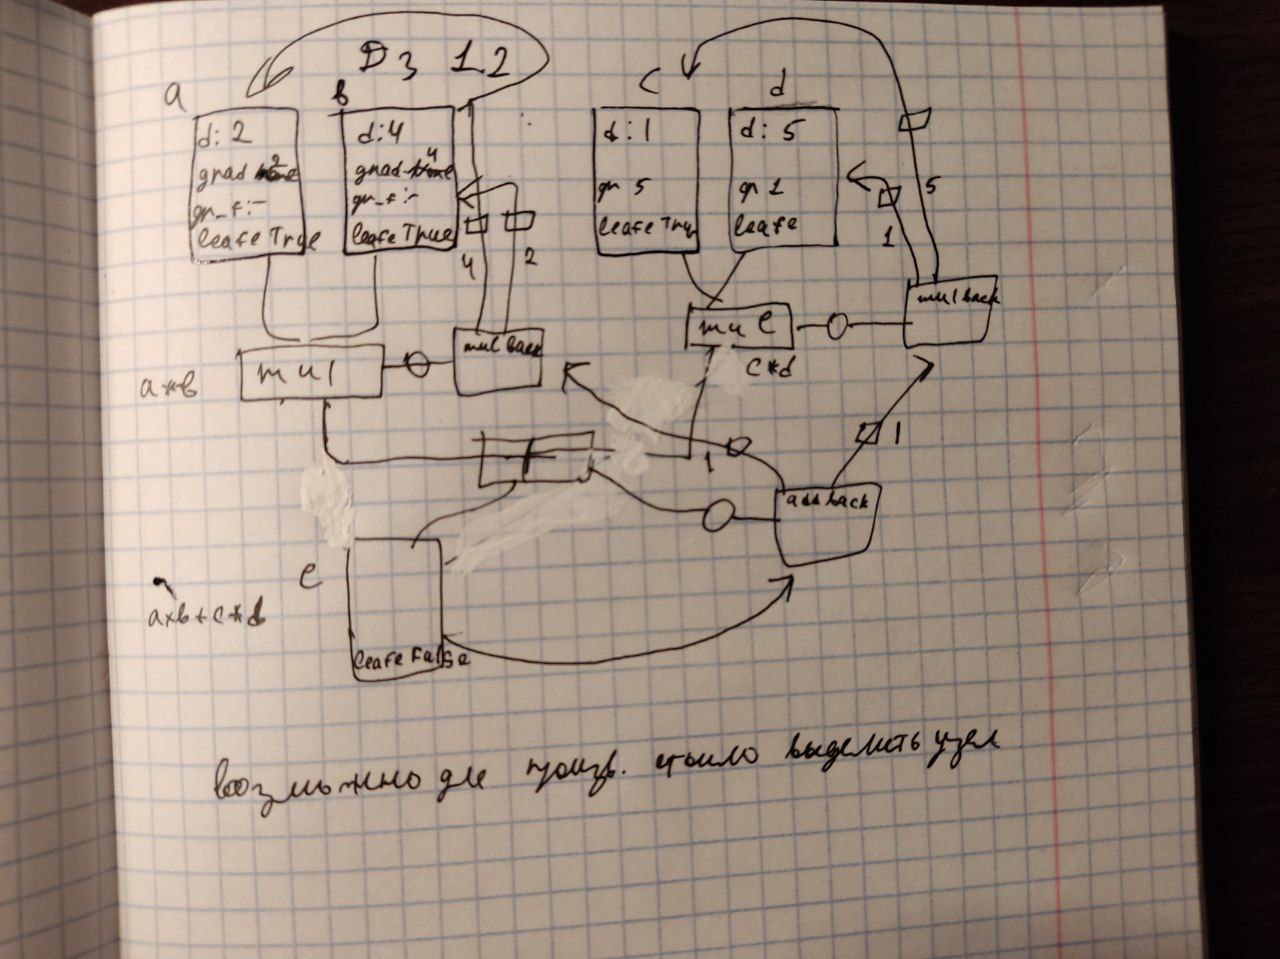 Дз 12
a
d: 2
grad 2
gr_f: -
leafe True
в
d: 4
grad 4
gr_f: -
leafe True
4
2
c
d: 1
gr 5
leafe True
d
d: 5
gr 1
leafe
1
5
mul
a*в
mul back
mul
c*d
mul back
1
1
add back
e
leafe False
a*в+c*d
возможно для произв. стоило выделить узел